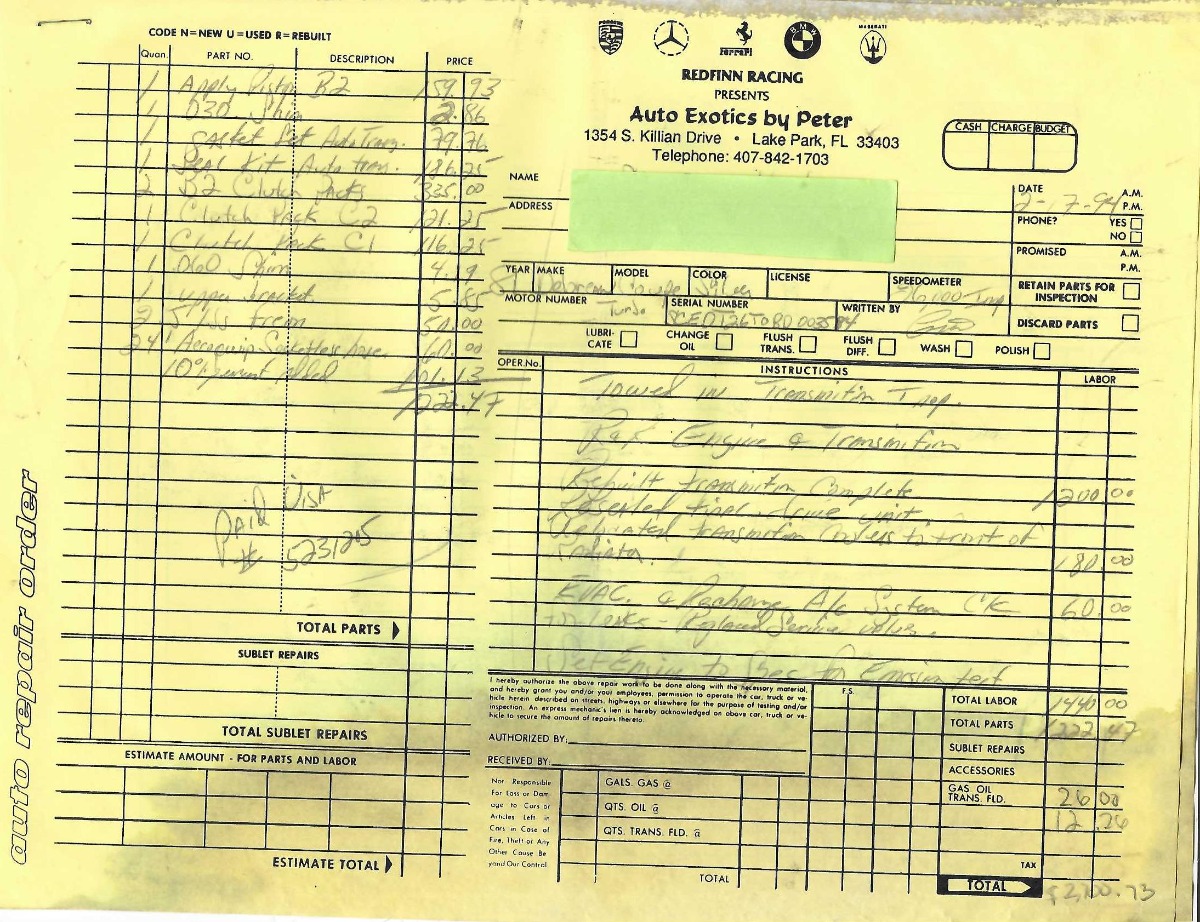 CODE N=NEW U=USED R=REBUILT
Quan. PART NO. DESCRIPTION PRICE
1 Apply Piston B2 159.93
1 D30 Shim 2.86
1 Gasket Set Auto Tran. 79.76
1 Seal Kit Auto tran. 186.25
2 B2 Clutch Packs 335.00
1 Clutch Pack C2 121.25
1 Clutch Pack C1 116.25
1 D60 Shim 4.19
1 upper bracket 5.85
50.00
24" Aeroquip hose 60.00
10% added 101.13
1222.47
Paid VISA
# 5231205
TOTAL PARTS
SUBLET REPAIRS
TOTAL SUBLET REPAIRS
ESTIMATE AMOUNT - FOR PARTS AND LABOR
ESTIMATE TOTAL
auto repair order
PORSCHE
Ferrari
BMW
MASERATI
REDFINN RACING
PRESENTS
Auto Exotics by Peter
1354 S. Killian Drive • Lake Park, FL 33403
Telephone: 407-842-1703
CASH CHARGE BUDGET
NAME
ADDRESS
DATE 2-17-94 A.M.
P.M.
PHONE? YES
NO
PROMISED A.M.
P.M.
YEAR MAKE MODEL COLOR LICENSE SPEEDOMETER
81 Delorean Coupe Silver
RETAIN PARTS FOR INSPECTION
MOTOR NUMBER Turbo SERIAL NUMBER WRITTEN BY
DISCARD PARTS
LUBRI-CATE
CHANGE OIL
FLUSH TRANS.
FLUSH DIFF.
WASH
POLISH
OPER.No. INSTRUCTIONS LABOR
Towed IN Transmition Inop.
R&R Engine & Transmition
Rebuilt transmition Complete 1200.00
Resealed final drive unit.
transmition Coolers to front of
radiator. 180.00
EVAC. & Recharge A/c System C/K 60.00
for leaks - Replaced Service valve.
Set Engine to Spec for Emission test
I hereby authorize the above repair work to be done along with the necessary material,
and hereby grant you and/or your employees, permission to operate the car, truck or ve-
hicle herein described on streets, highways or elsewhere for the purpose of testing and/or
inspection. An express mechanic's lien is hereby acknowledged on above car, truck or ve-
hicle to secure the amount of repairs thereto.
AUTHORIZED BY:
RECEIVED BY:
F.S.
TOTAL LABOR 1440.00
TOTAL PARTS 1222.47
SUBLET REPAIRS
ACCESSORIES
GAS OIL
TRANS. FLD. 26.00
12.26
TAX
TOTAL $2,700.73
Not Responsible
For Loss or Dam-
age to Cars or
Articles Left in
Cars in Case of
Fire, Theft or Any
Other Cause Be
yond Our Control
GALS. GAS @
QTS. OIL @
QTS. TRANS. FLD. @
TOTAL